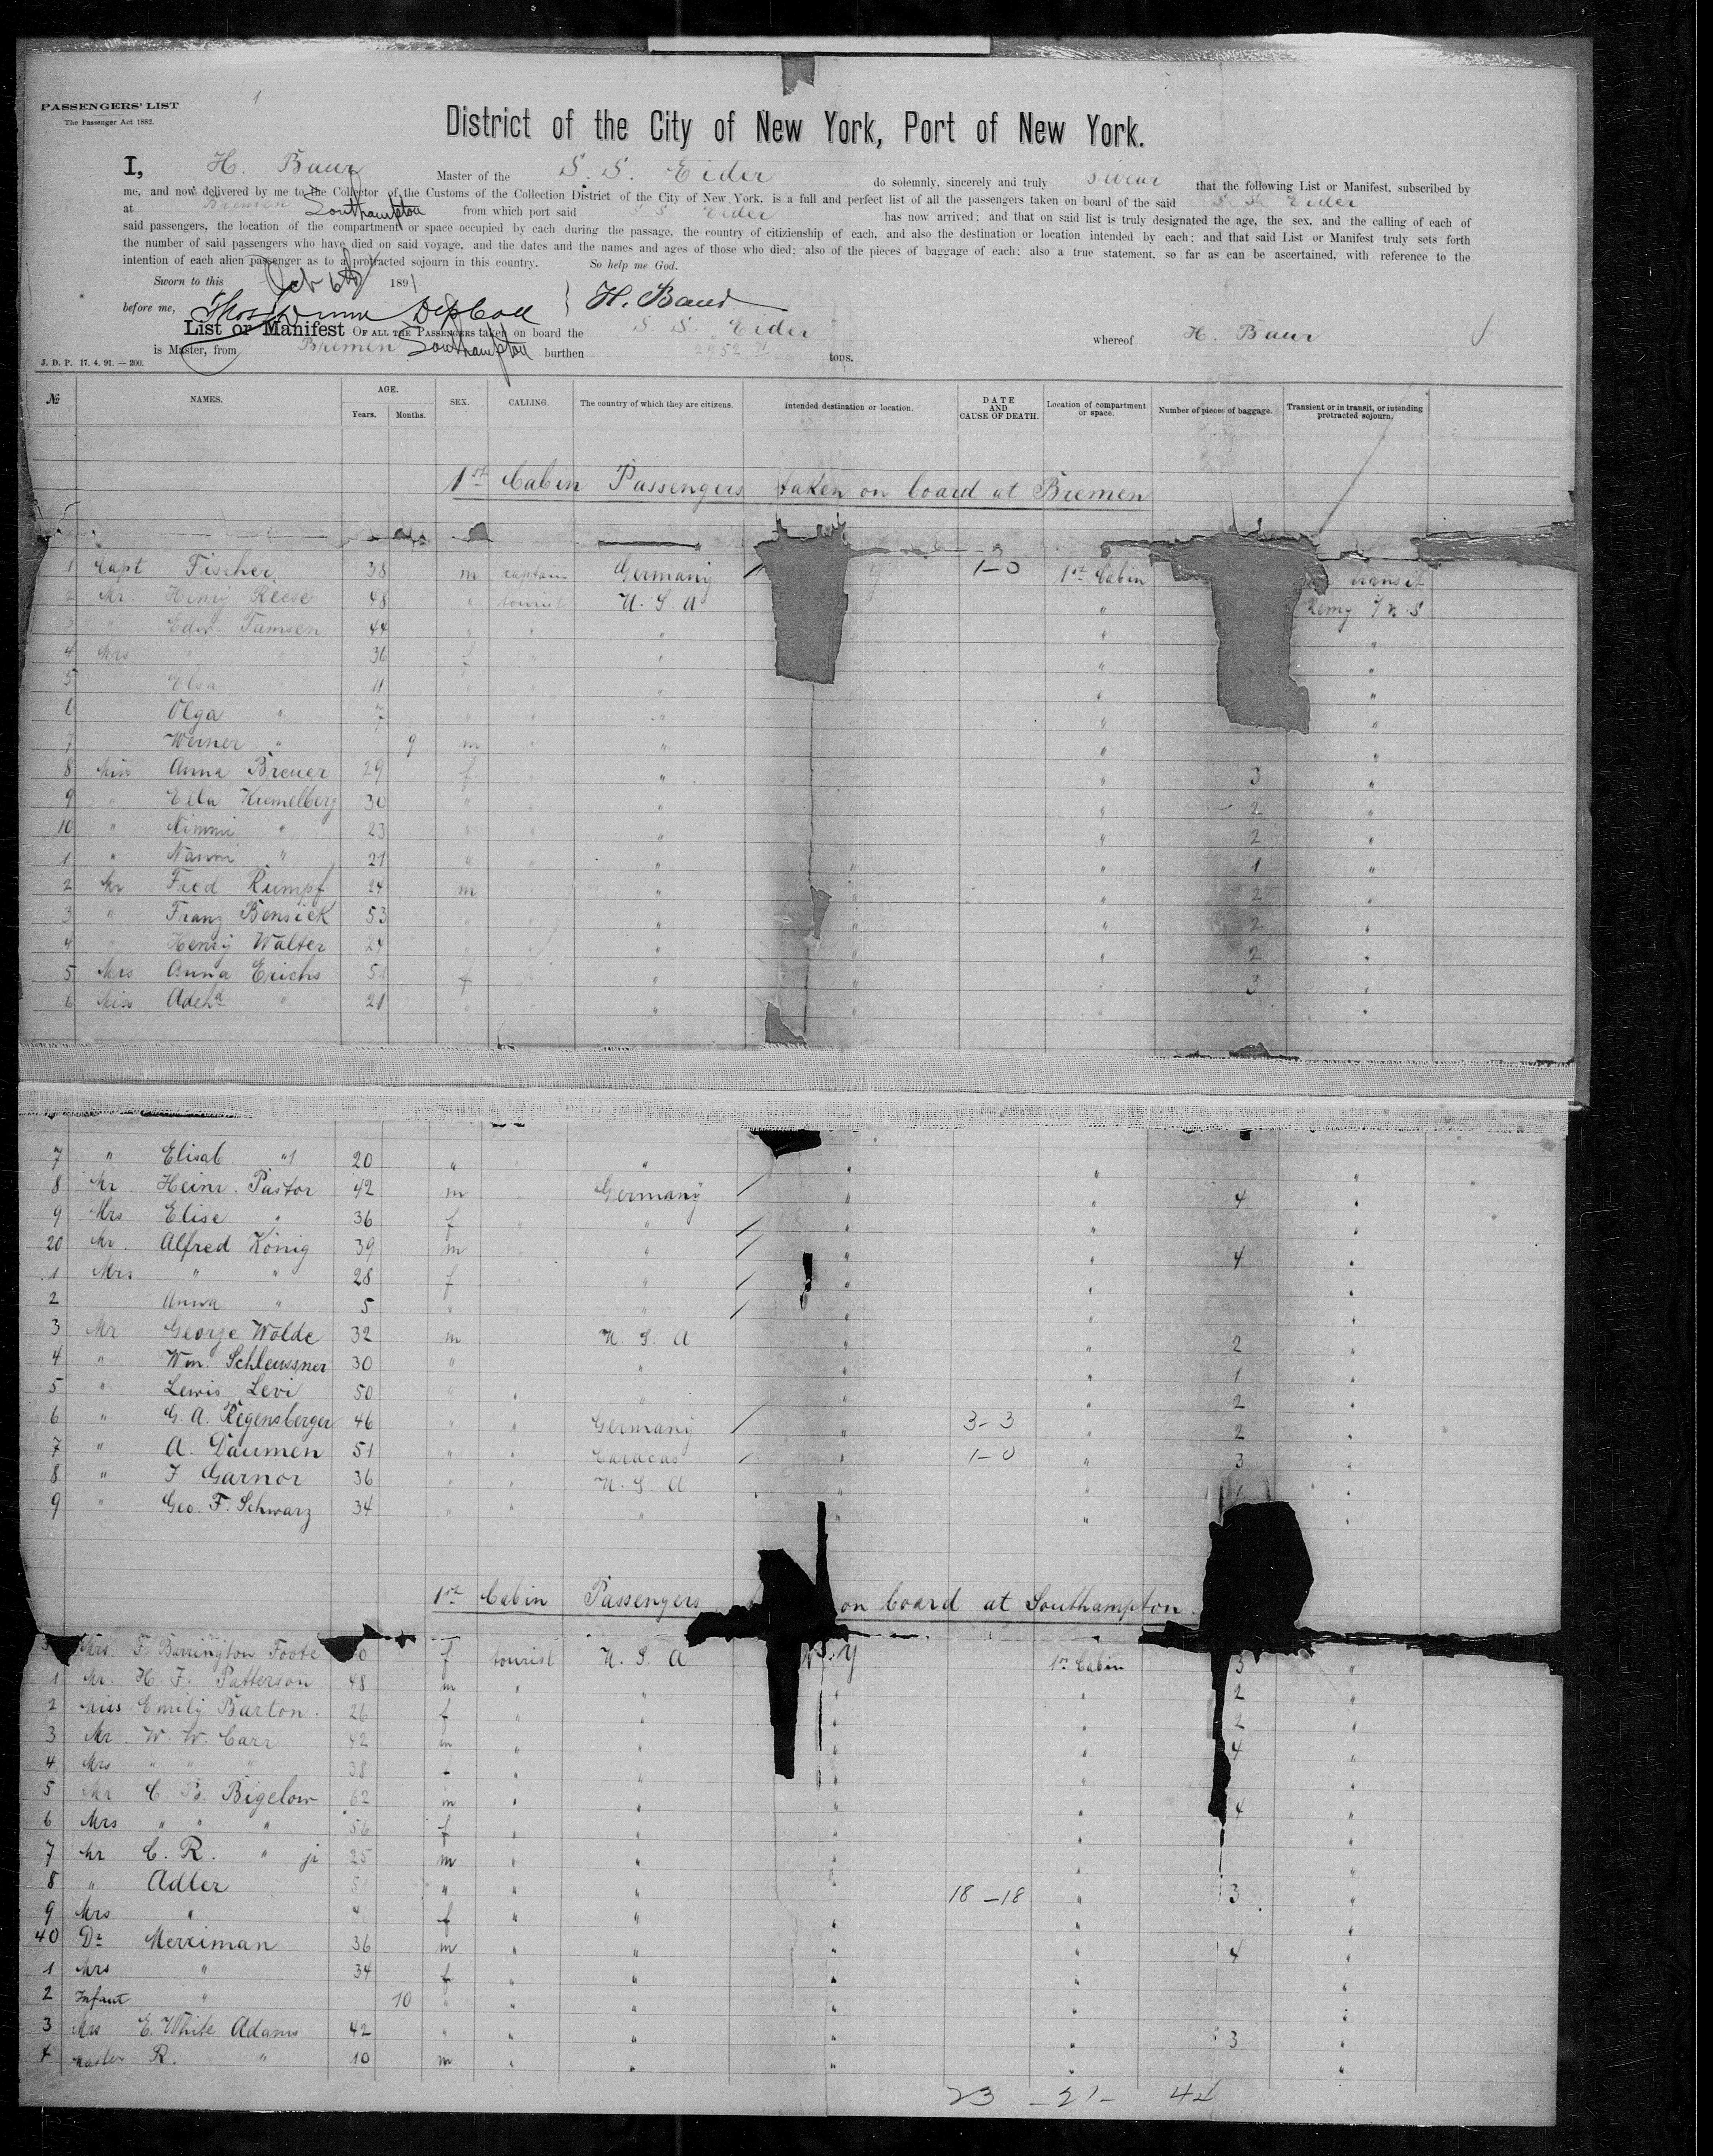 PASSENGERS' LIST
The Passenger Act 1882.
1
District of the City of New York, Port of New York.
I, H. Baur Master of the S. S. Eider do solemnly, sincerely and truly swear that the following List or Manifest, subscribed by
me, and now delivered by me to the Collector of the Customs of the Collection District of the City of New York, is a full and perfect list of all the passengers taken on board of the said S. S. Eider
at Bremen Southampton from which port said S S Eider has now arrived; and that on said list is truly designated the age, the sex, and the calling of each of
said passengers, the location of the compartment or space occupied by each during the passage, the country of citizienship of each, and also the destination or location intended by each; and that said List or Manifest truly sets forth
the number of said passengers who have died on said voyage, and the dates and the names and ages of those who died; also of the pieces of baggage of each; also a true statement, so far as can be ascertained, with reference to the
intention of each alien passenger as to a protracted sojourn in this country. So help me God.
Sworn to this Oct 6th 1891
before me, } H. Baur
List or Manifest OF ALL THE PASSENGERS taken on board the S. S. Eider whereof H. Baur
is Master, from Bremen Southampton burthen 2952 tons.
J. D. P. 17. 4. 91. — 200.
№ NAMES. AGE. Years. Months. SEX. CALLING. The country of which they are citizens. Intended destination or location. DATE AND CAUSE OF DEATH. Location of compartment or space. Number of pieces of baggage. Transient or in transit, or intending protracted sojourn.
1st Cabin Passengers taken on board at Bremen
1 Capt Fischer 38 m captain Germany / Y 1-0 1st Cabin transit
2 Mr. Henry Reese 48 " tourist U. S. A "
3 " Edw. Tamsen 44 " " " " "
4 Mrs " " 36 f " " " "
5 Elsa 11 " " " " "
6 Olga " 7 " " " " "
7 Werner " 9 m " " " "
8 Miss Anna Breuer 29 f " " 3 "
9 " Ella Kremelberg 30 " " " " 2 "
10 " Mimmi " 23 " " " " 2 "
1 " Nanni " 21 " " " " " 1 "
2 Mr Fred Rumpf 24 m " " " 2 "
3 " Franz Bensiek 53 " " " " " 2 "
4 " Henry Walter 24 " " " " " 2 "
5 Mrs Anna Erichs 51 f " " " 3 "
6 Miss Adeh^d " 21 " " " " " "
7 " Elisab " 20 " " " " "
8 Mr Heinr. Pastor 42 m Germany / " " 4 "
9 Mrs Elise " 36 f " " / " " "
20 Mr. Alfred König 39 m " / " " 4 "
1 Mrs " " 28 f " / " " "
2 Anna " 5 " " / " "
3 Mr George Wolde 32 m U. S. A " " 2 "
4 " Wm. Schleussner 30 " " " " 1 "
5 " Lewis Levi 50 " " " " " 2 "
6 " G. A. Regensberger 46 " " Germany / " 3-3 " 2 "
7 " A. Daumen 51 " " Caracas / " 1-0 " 3 "
8 " F Garnor 36 " " U. S. A " " "
9 " Geo. F. Schwarz 34 " " " " " "
1st Cabin Passengers on board at Southampton.
Mrs. F Barrington Foote f tourist U. S. A N. Y 1st Cabin 3 "
1 Mr. H. F. Patterson 48 m " " " " 2 "
2 Miss Emily Barton. 26 f " " " " 2 "
3 Mr. W. W. Carr 42 m " " " " 4 "
4 Mrs " " " 38 f " " " " "
5 Mr C. B. Bigelow 62 m " " " " 4 "
6 Mrs " " " 56 f " " " " "
7 Mr C. R. " jr 25 m " " " " "
8 " Adler " " " " 18-18 " 3 "
9 Mrs " f " " " " "
40 Dr Merriman 36 m " " " " 4 "
1 Mrs " 34 f " " " " "
2 Infant " 10 " " " " " "
3 Mrs E. White Adams 42 " " " " " 3 "
4 Master R. " 10 m " " " " "
23 - 21- 44